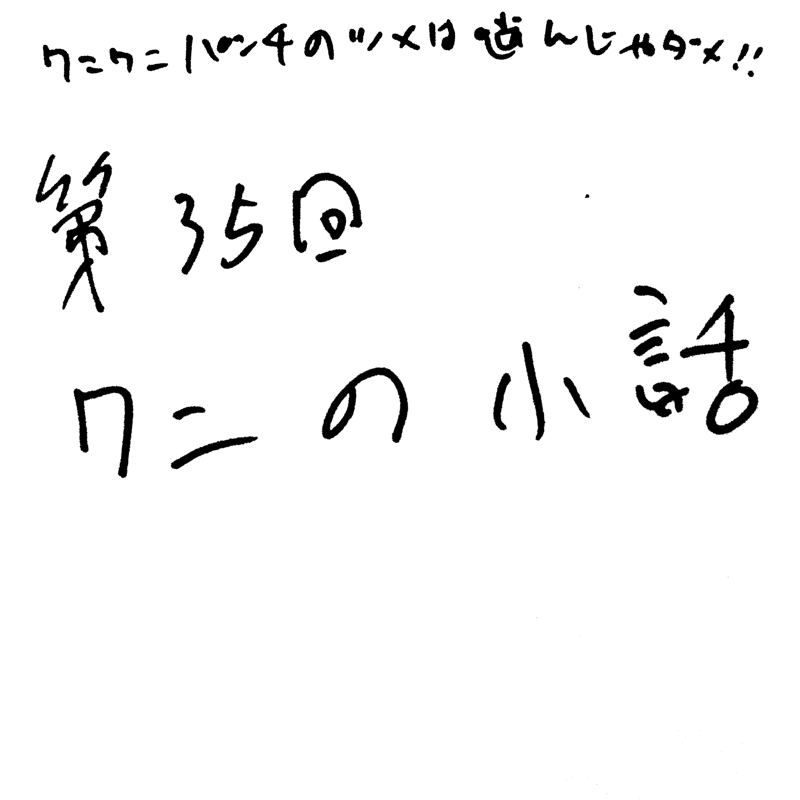 ワニワニパンチのツメは噛んじゃダメ!!
第35回
ワニの小話